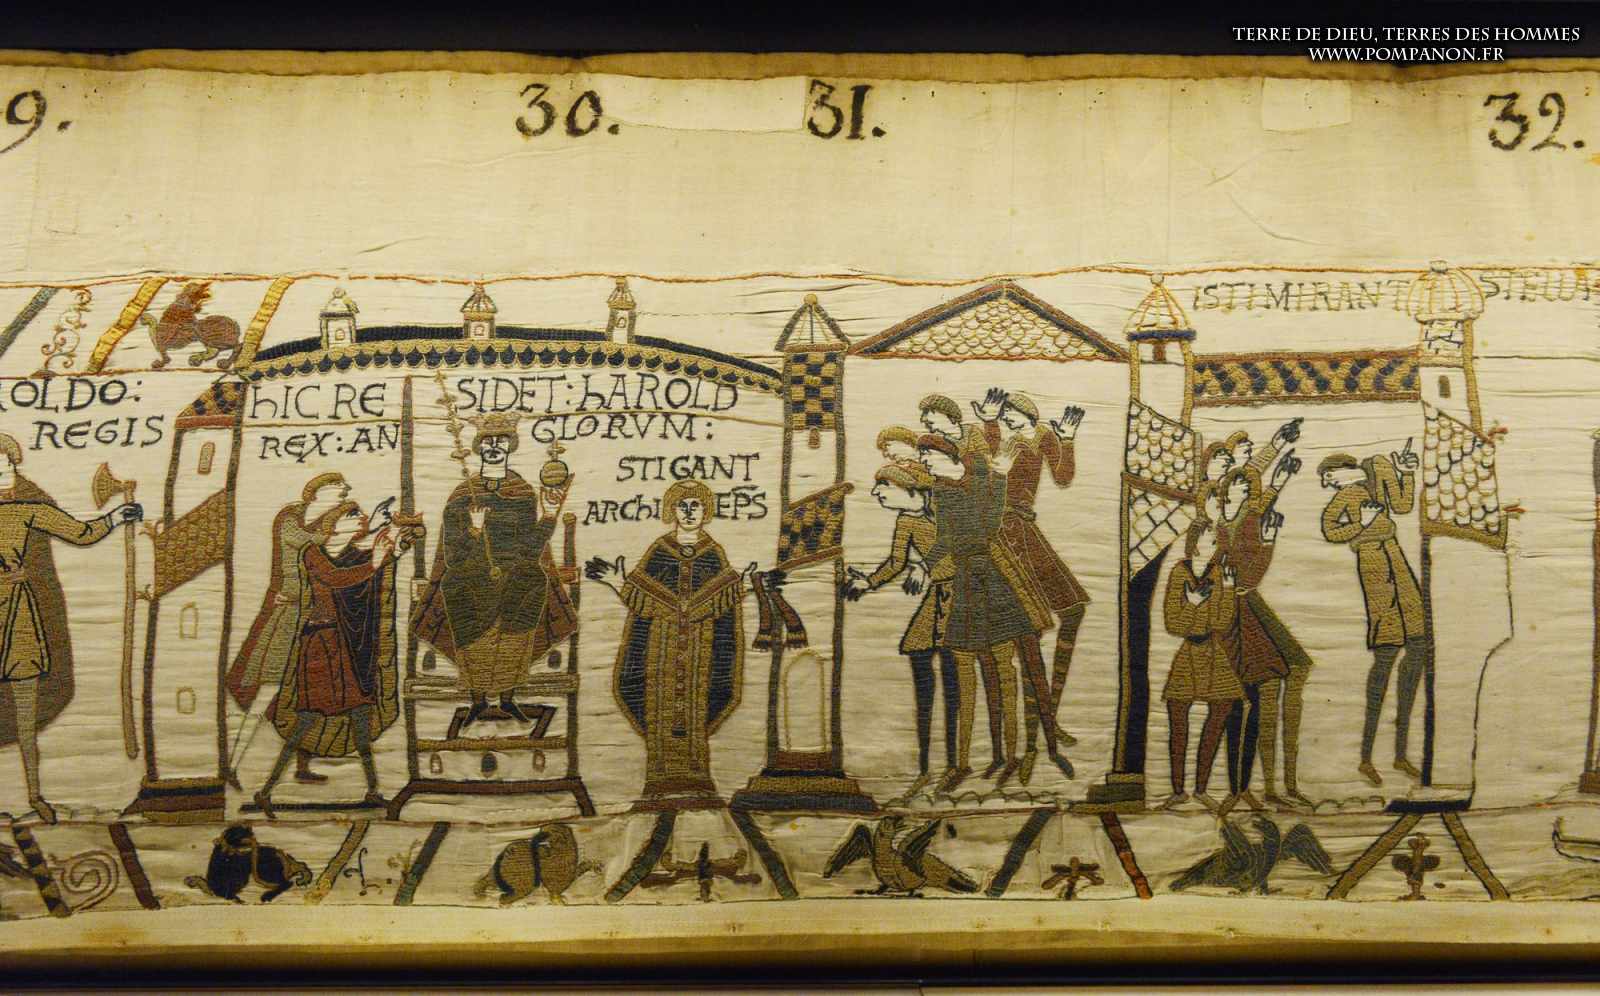 TERRE DE DIEU, TERRES DES HOMMES
WWW.POMPANON.FR
9.
30.
31.
32.
ROLDO:
REGIS
hIC RE
SIDET: hAROLD
REX: AN
GLORVM:
STIGANT
ARChI EPS
ISTI MIRANT
STELLA